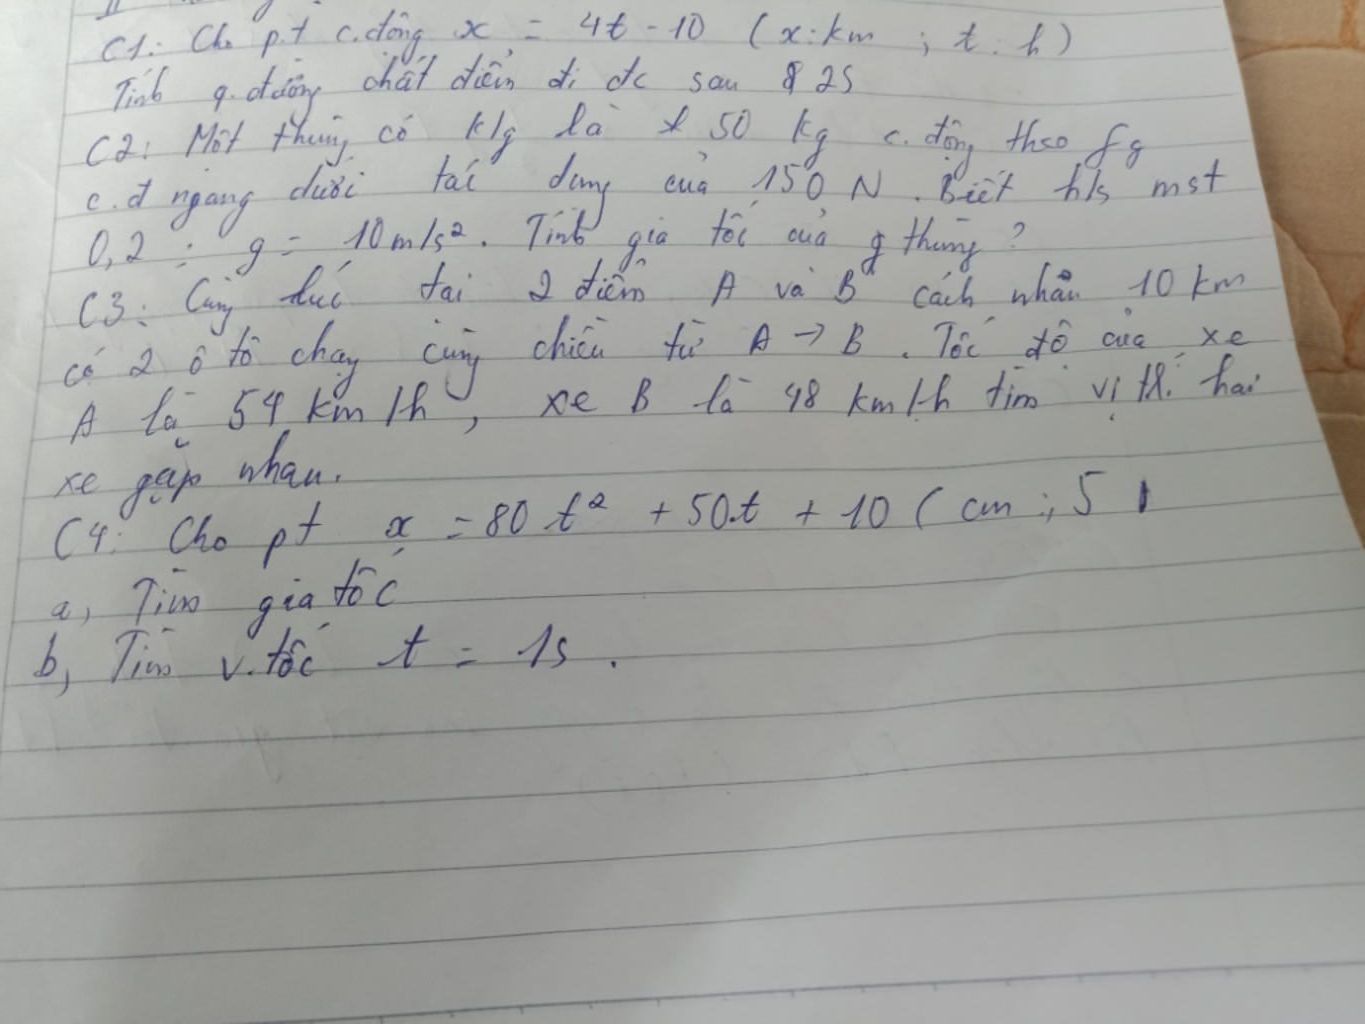 C1: Cho p.t c.động x = 4t - 10 (x: km ; t: h)
Tính q.đường chất điểm đi đc sau 2s
C2: Một thùng có klg là 50 kg c. động theo fg
c.đ ngang dưới tác dụng của 150 N. Biết hls mst
0,2 ; g = 10m/s². Tính gia tốc của thùng ?
C3: Cùng lúc tại 2 điểm A và B cách nhau 10 km
có 2 ô tô chạy cùng chiều từ A → B. Tốc độ của xe
A là 54 km/h, xe B là 48 km/h tìm vị trí hai
xe gặp nhau.
C4: Cho pt x = 80t² + 50t + 10 (cm ; s
a, Tìm gia tốc
b, Tìm v.tốc t = 1s.